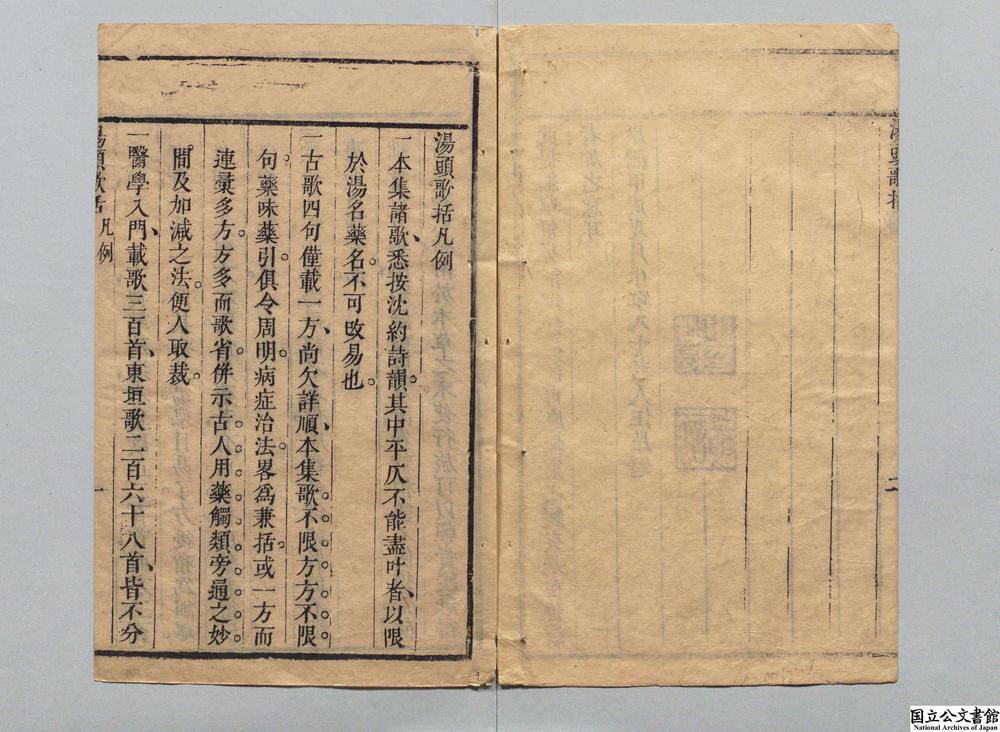 湯頭歌括
二
湯頭歌括凡例
一本集諸歌悉按沈約詩韻其中平仄不能盡叶者以限
於湯名藥名不可改易也
一古歌四句僅載一方尚欠詳順本集歌不限方方不限
句藥味藥引俱令周明病症治法畧為兼括或一方而
連彙多方方多而歌省併示古人用藥觸類旁通之妙
間及加減之法便人取裁
一醫學入門載歌三百首東垣歌二百六十八首皆不分
湯頭歌括 凡例
一
国立公文書館
National Archives of Japan